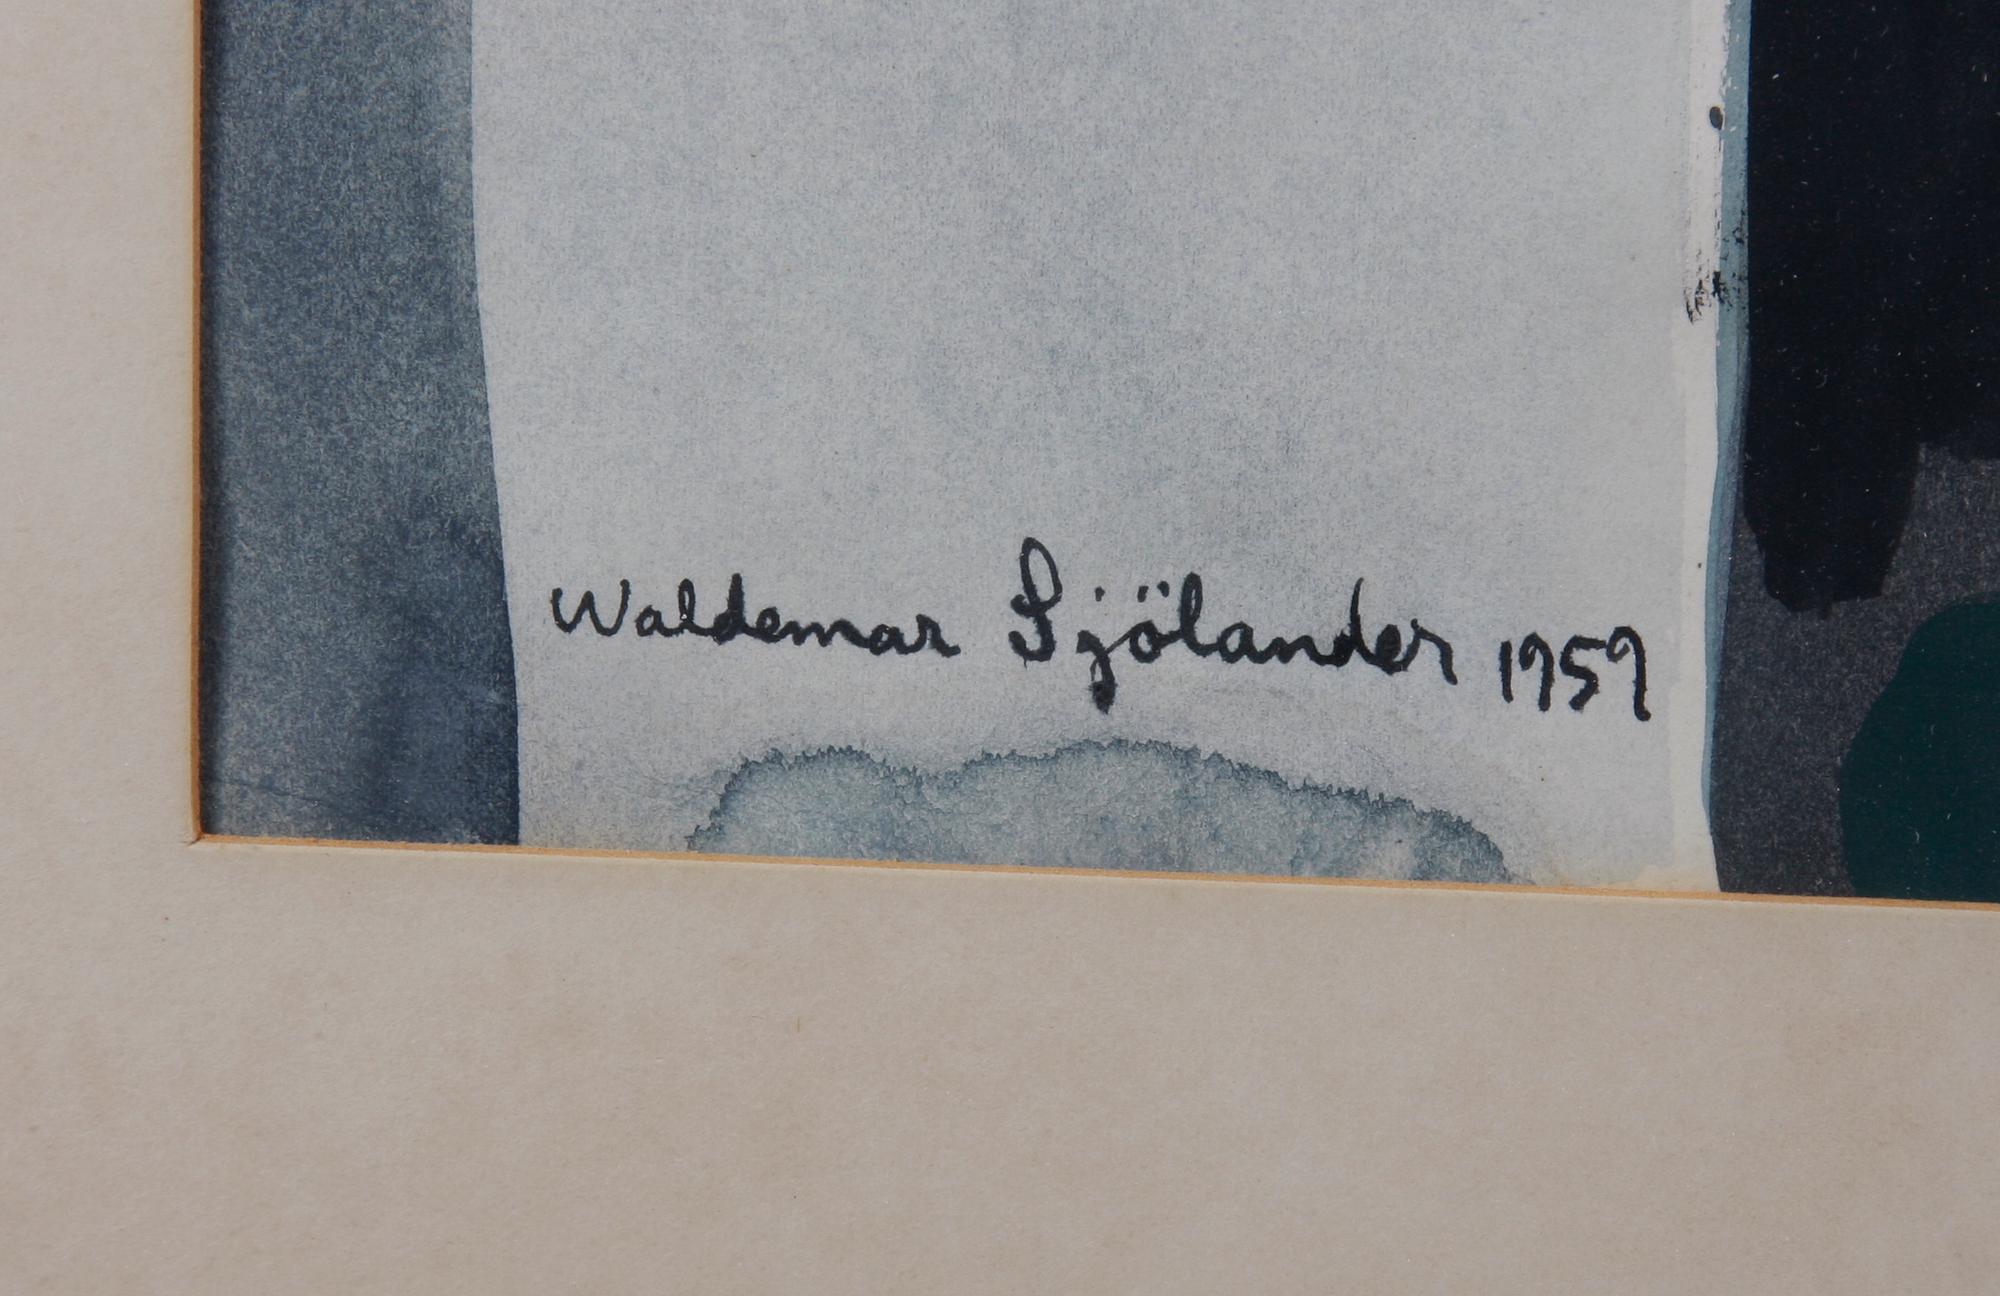 Waldemar Sjölander 1959